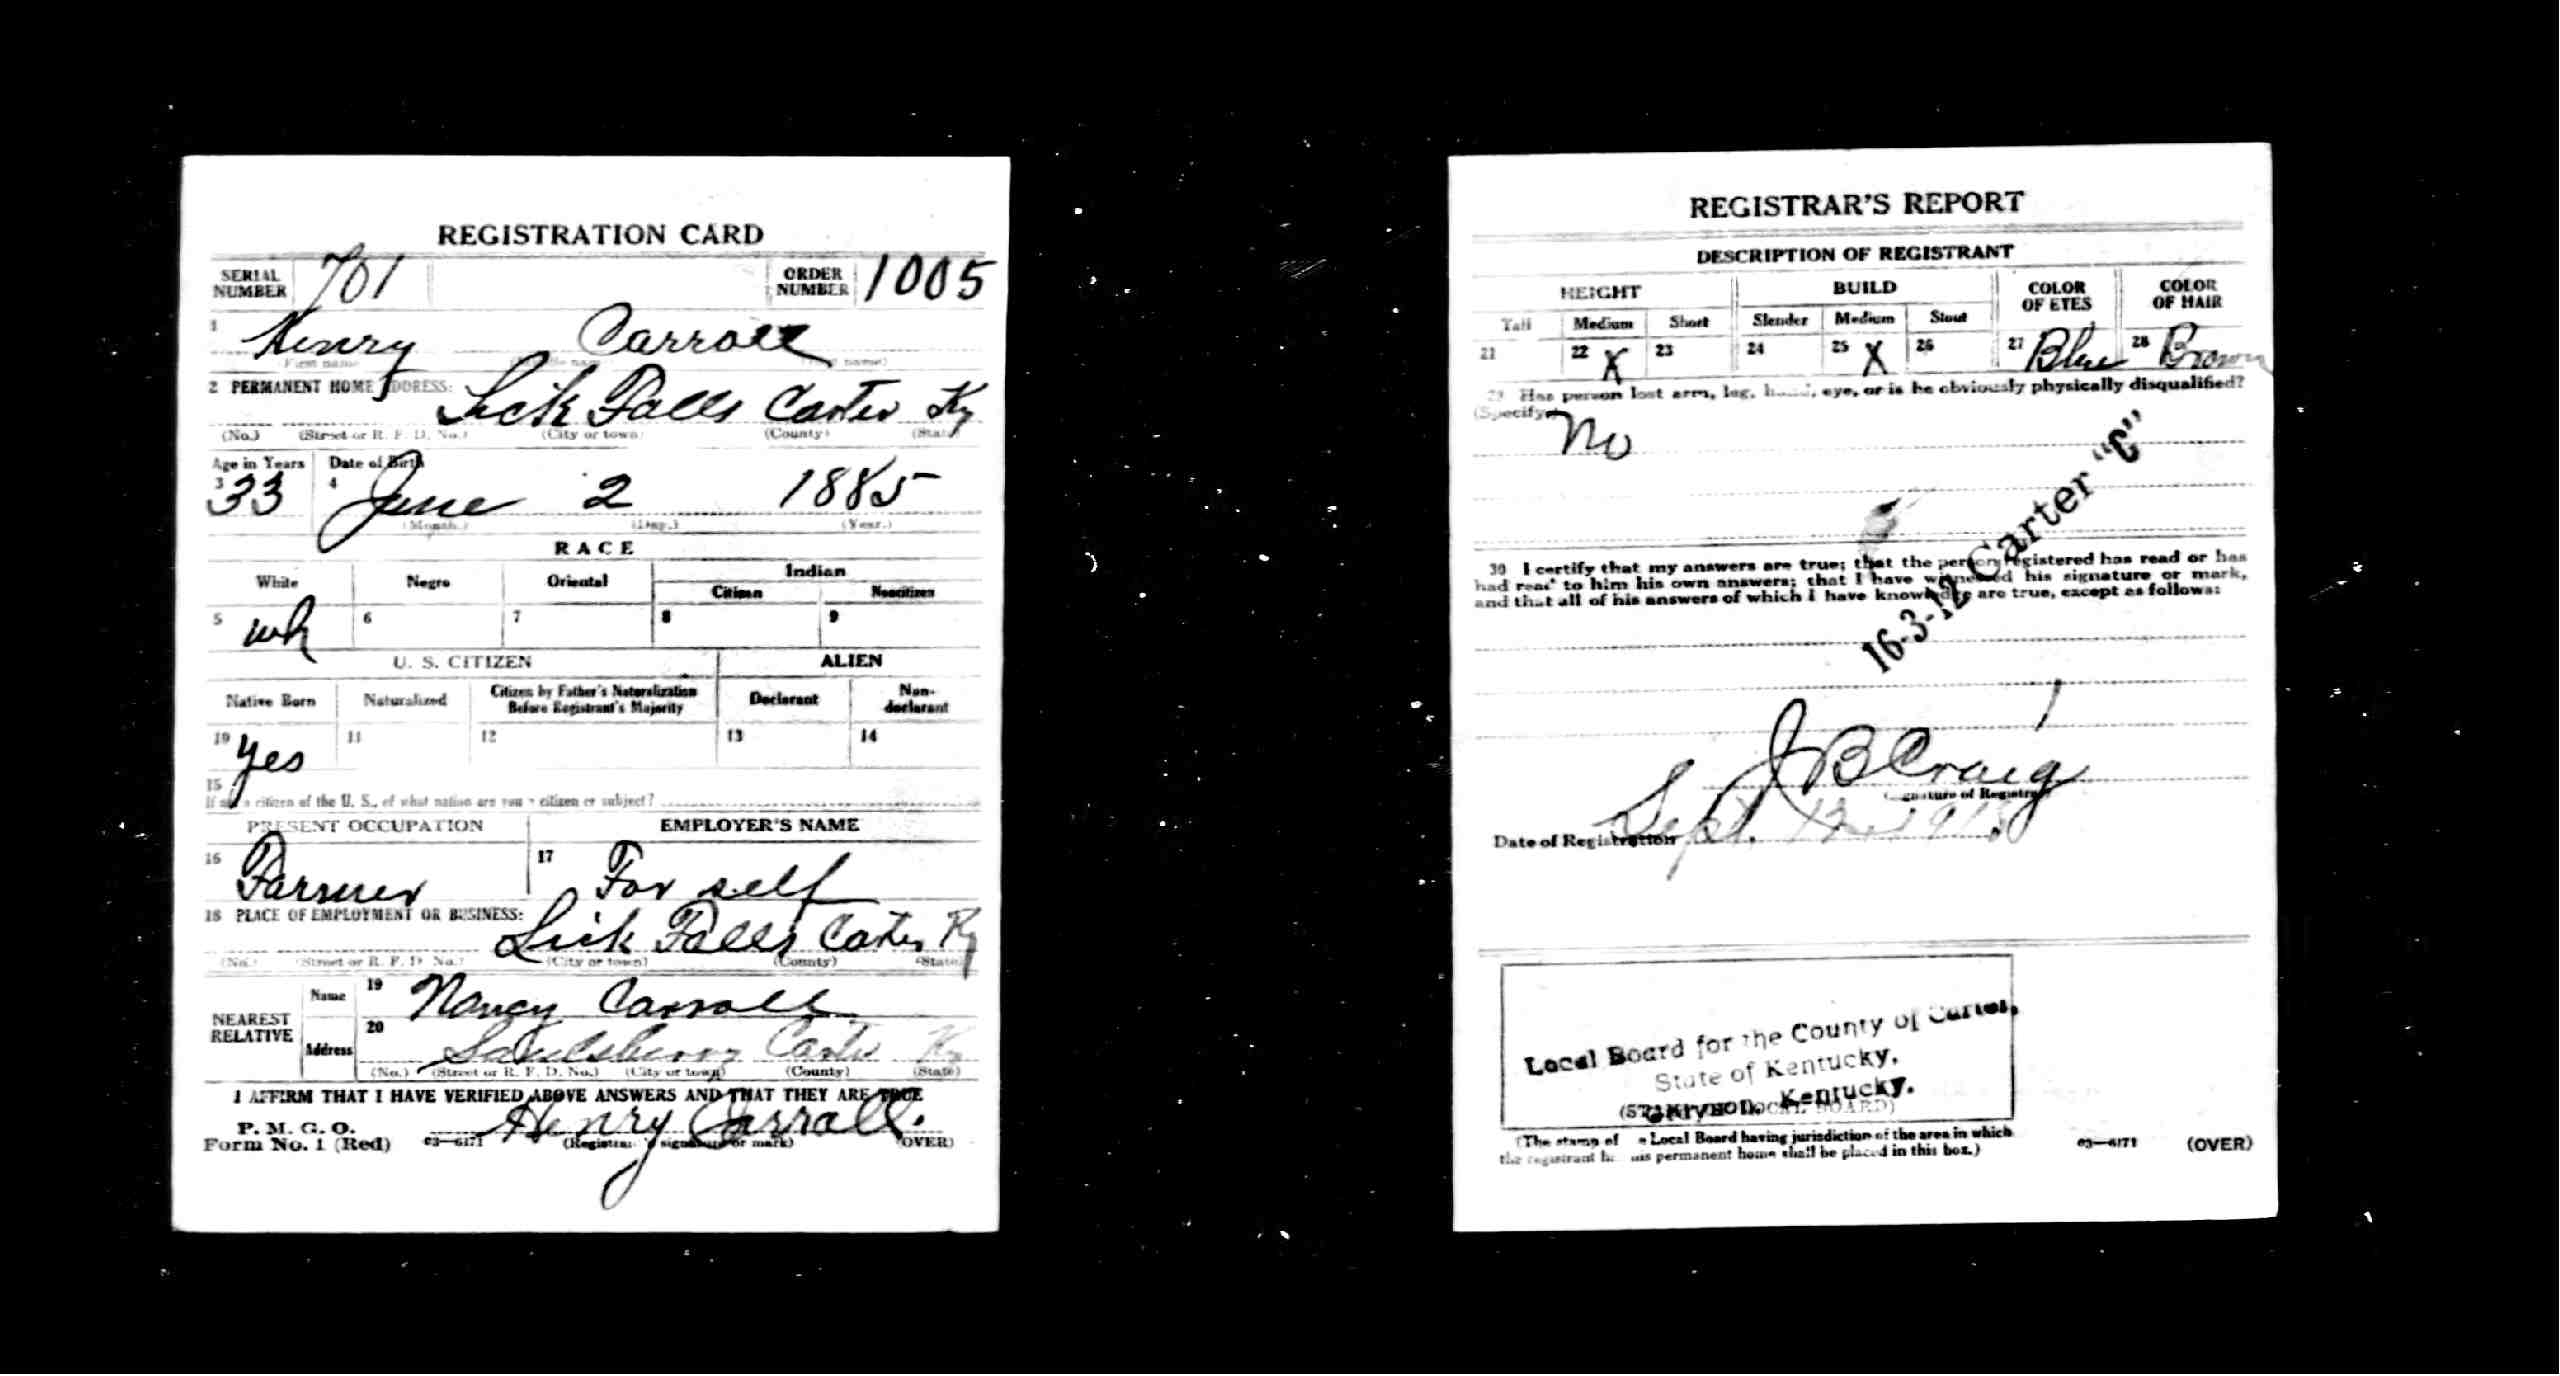 REGISTRATION CARD
SERIAL NUMBER 701 ORDER NUMBER 1005
1 Henry Carroll
First name name)
2 PERMANENT HOME ADDRESS: Lick Falls Carter Ky
(No.) (Street or R. F. D. No.) (City or town) (County) (State)
Age in Years Date of Birth
3 33 4 June 2 1885
(Month.) (Day.) (Year.)
RACE
White Negro Oriental Indian
Citizen Noncitizen
5 wh 6 7 8 9
U. S. CITIZEN ALIEN
Native Born Naturalized Citizen by Father's Naturalization Before Registrant's Majority Declarant Non-declarant
10 yes 11 12 13 14
15
If not a citizen of the U. S., of what nation are you a citizen or subject?
PRESENT OCCUPATION EMPLOYER'S NAME
16 Farmer 17 For self
18 PLACE OF EMPLOYMENT OR BUSINESS: Lick Falls Carter Ky
(No.) (Street or R. F. D. No.) (City or town) (County) (State)
NEAREST RELATIVE Name 19 Nancy Carroll
Address 20 Carter Ky
(No.) (Street or R. F. D. No.) (City or town) (County) (State)
I AFFIRM THAT I HAVE VERIFIED ABOVE ANSWERS AND THAT THEY ARE TRUE
P. M. G. O.
Form No. 1 (Red) 03—6171 Henry Carroll.
(Registrant's signature or mark) (OVER)
REGISTRAR'S REPORT
DESCRIPTION OF REGISTRANT
HEIGHT BUILD COLOR OF EYES COLOR OF HAIR
Tall Medium Short Slender Medium Stout
21 22 X 23 24 25 X 26 27 Blue 28 Brown
29 Has person lost arm, leg, hand, eye, or is he obviously physically disqualified?
(Specify) No
16-3-12 Carter "C"
30 I certify that my answers are true; that the person registered has read or has
had read to him his own answers; that I have witnessed his signature or mark,
and that all of his answers of which I have knowledge are true, except as follows:
J B Craig
(Signature of Registrar)
Date of Registration Sept. 12 1918
Local Board for the County of Carter,
State of Kentucky,
Kentucky.
(STAMP OF LOCAL BOARD)
(The stamp of the Local Board having jurisdiction of the area in which
the registrant has his permanent home shall be placed in this box.)
03—6171 (OVER)